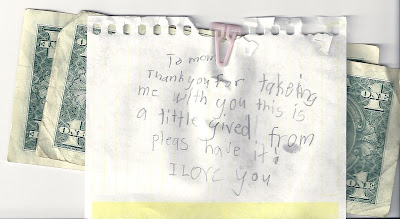 To mom
Thank you for takeing
me with you this is
a tittle gived from
pleas have it!
I LOVE you
ONE
ONE
ONE